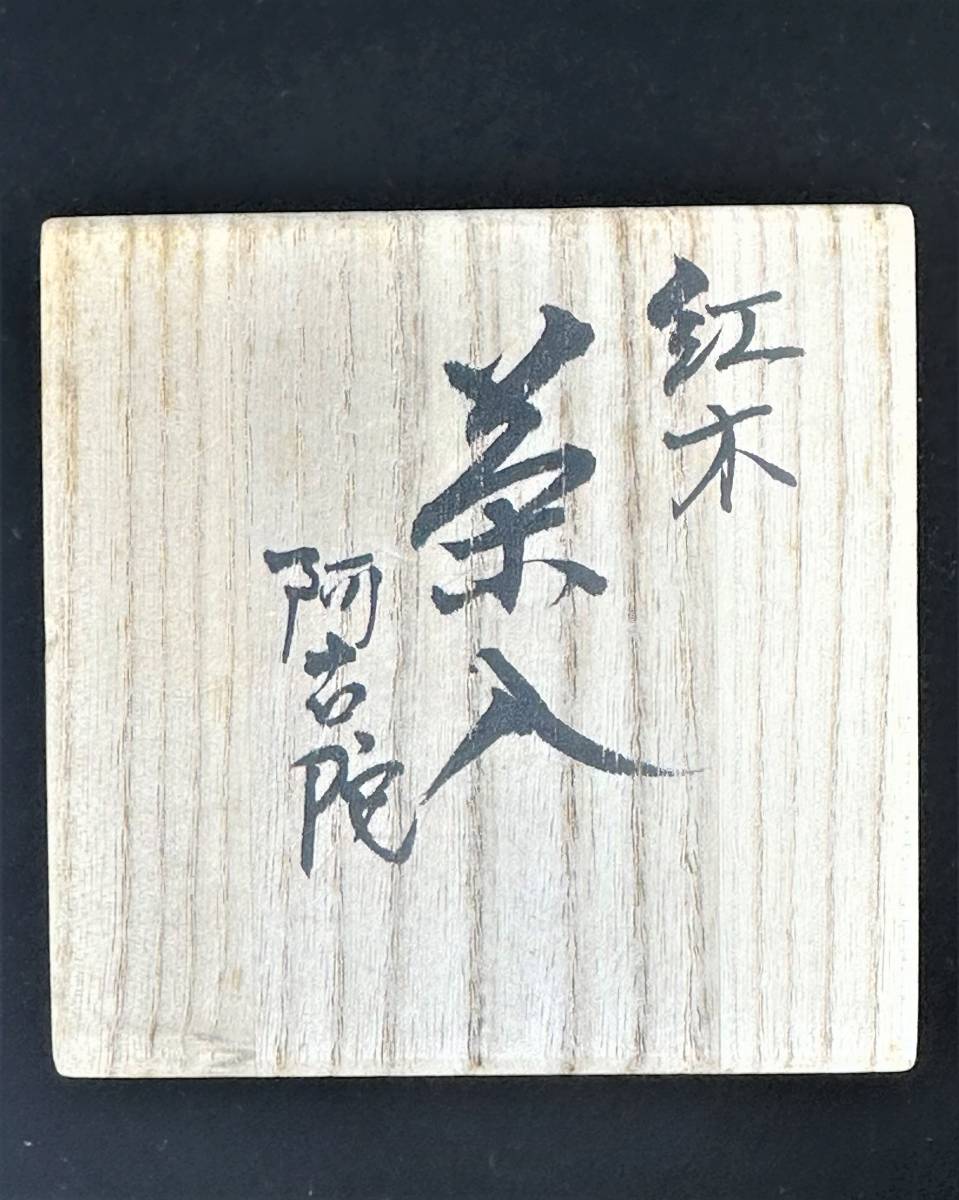 紅木
茶入
阿古陀